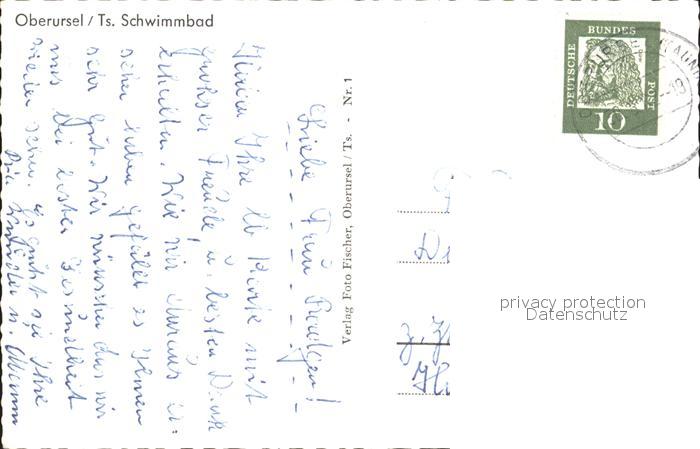 Oberursel / Ts. Schwimmbad
Liebe Frau
Haben Ihre lb Karte mit
grosser Freude u. besten Dank
erhalten. Wie wir daraus er-
sehen haben gefällt es Ihnen
sehr gut. Wir wünschen das wir
uns bei bester Gesundheit
wieder sehen. Es grüßt sie Ihre
u. Mann
Verlag Foto Fischer, Oberursel / Ts. - Nr. 1
DEUTSCHE
BUNDES
POST
10
privacy protection
Datenschutz